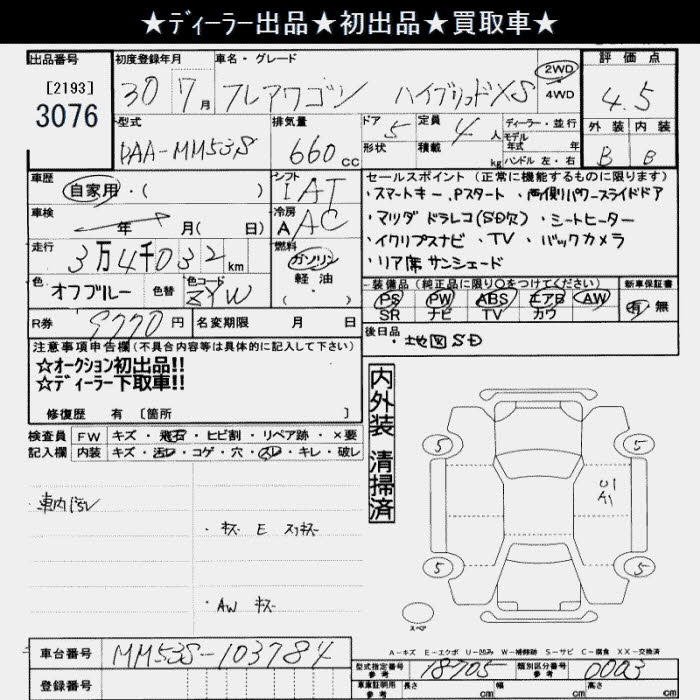 ★ディーラー出品★初出品★買取車★
出品番号
[2193]
3076
初度登録年月
30 7月
車名・グレード
フレアワゴン ハイブリッドXS
2WD
4WD
評価点
4.5
外装 内装
B B
型式
DAA-MM53S
排気量
660cc
ドア 5
形状
定員 4人
積載 kg
ディーラー・並行
モデル
年式 年
ハンドル 左・右
車歴
自家用・( )
シフト
IAT
車検
年 月( 日)
冷房
A AC
走行
3万4千032km
燃料
ガソリン
軽油
( ・ )
色
オフブルー
色替
色コード
ZYW
R券 9770円
名変期限 月 日
セールスポイント(正常に機能するものに限ります)
・スマートキー、Pスタート、両側パワースライドドア
・マツダ ドラレコ(SD欠)、シートヒーター
・イクリプスナビ、TV、バックカメラ
・リア席サンシェード
装備品(純正品に限り○をつけてください)
PS PW ABS エアB AW
SR ナビ TV カワ
新車保証書
有 無
後日品
・地図SD
注意事項申告欄(不具合内容等は具体的に記入して下さい)
☆オークション初出品!!
☆ディーラー下取車!!
修復歴 有 [箇所 ]
検査員
記入欄
FW キズ・飛石・ヒビ割・リペア跡・×要
内装 キズ・汚レ・コゲ・穴・スレ・キレ・破レ
車内汚レ
・キズ E スリキズ
・AW キズ
内外装 清掃済
5 5
U1
A1
5 5
スペア
A-キズ E-エクボ U-凹み W-補修跡 S-サビ C-腐食 XX-交換済
車台番号 MM53S-103784
登録番号
型式指定番号
参考
18705
類別区分番号
参考
0003
車庫証明用
参考
長さ cm 幅 cm 高さ cm